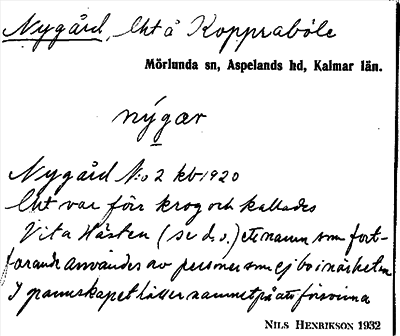 Nygård, lht å Kopprabåle
Mörlunda sn, Aspelands hd, Kalmar län.
nýgær
Nygård N:o 2 kb 1920
Lht var förr krog och kallades
Vita Hästen (se d. o.) ett namn som fort-
farande användes av personer som ej bo i närheten
I grannskapet håller namnet på att försvinna
NILS HENRIKSON 1932